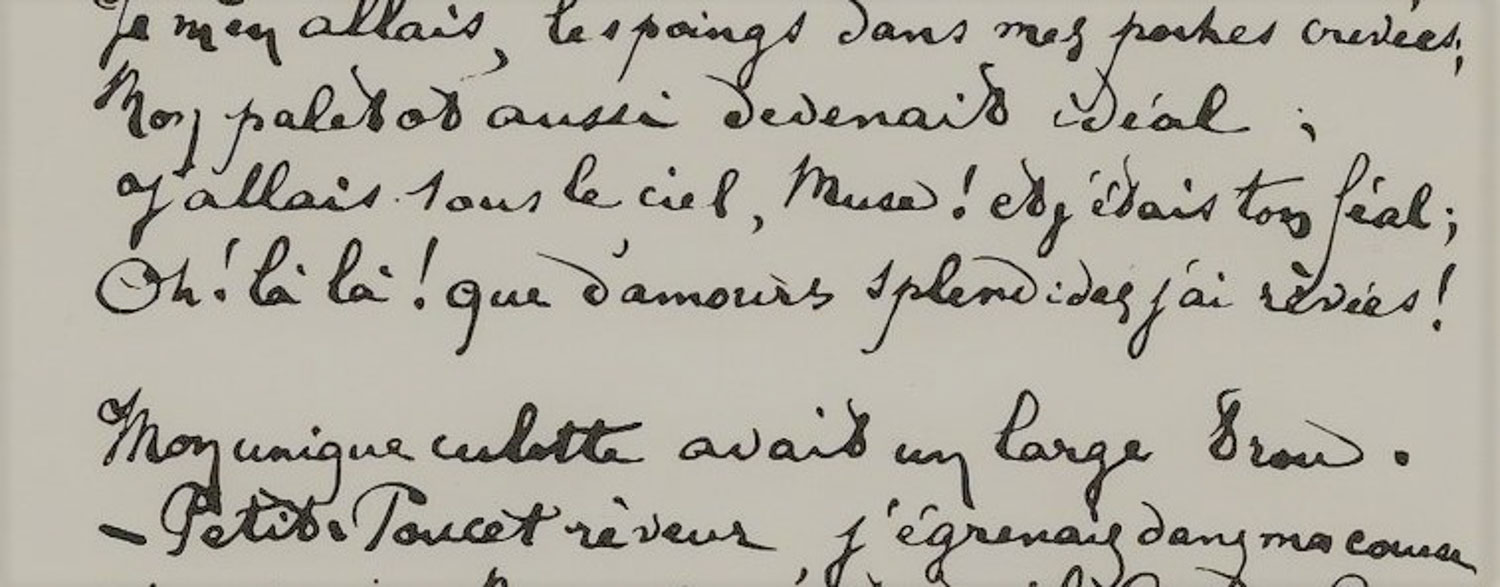 Je m'en allais, les poings dans mes poches crevées;
Mon paletot aussi devenait idéal ;
J'allais sous le ciel, Muse! et j'étais ton féal;
Oh! là là! que d'amours splendides j'ai rêvées!
Mon unique culotte avait un large trou.
– Petit-Poucet rêveur, j'égrenais dans ma course